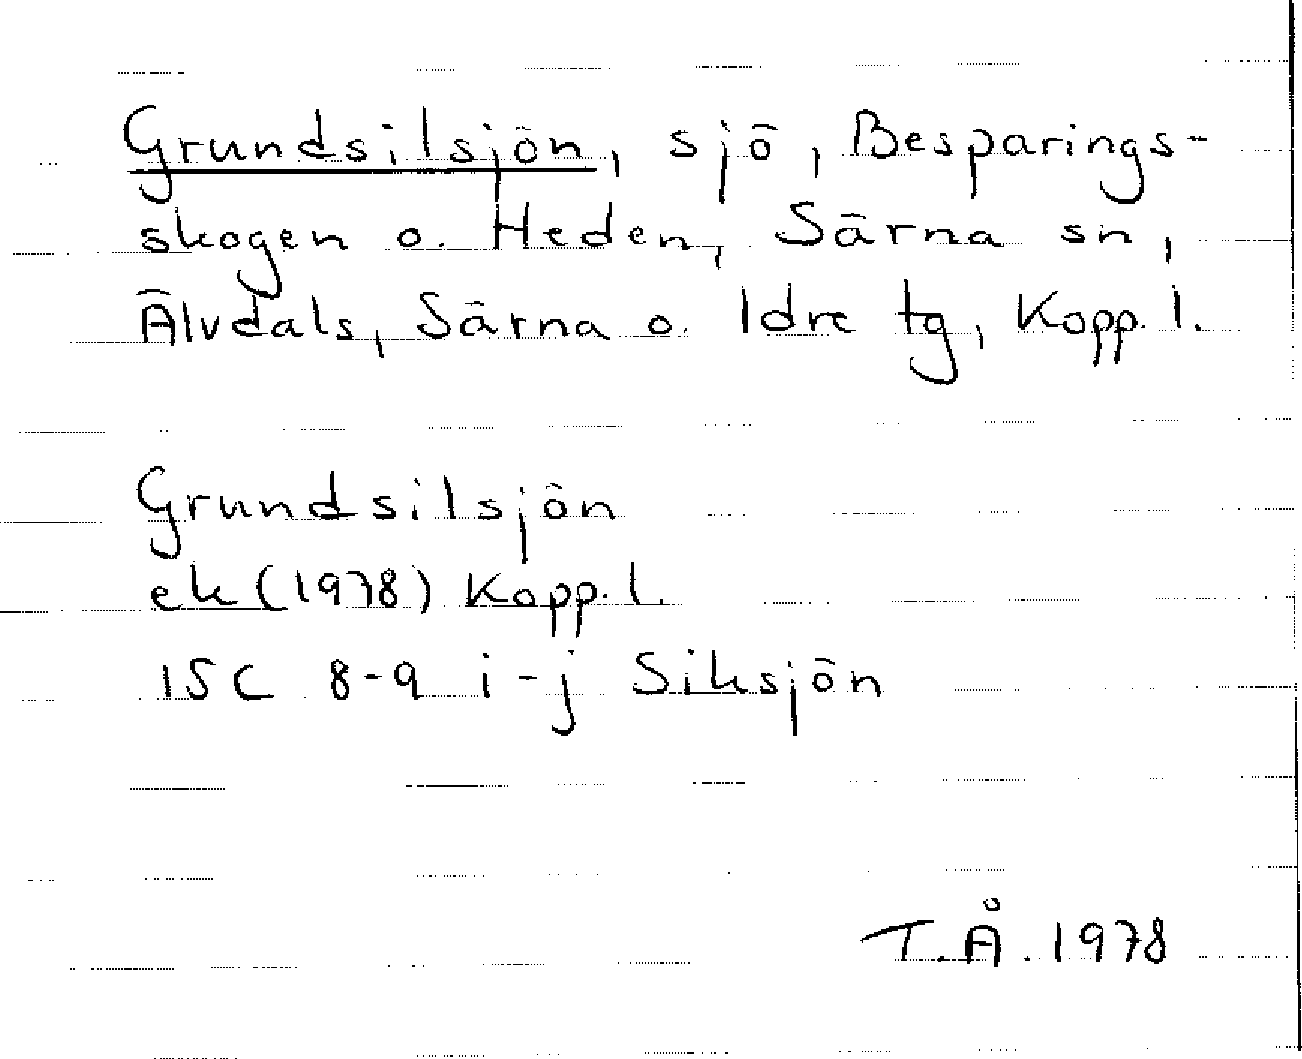 Grundsilsjön, sjö, Besparings-
skogen o. Heden, Särna sn,
Älvdals, Särna o. Idre tg, Kopp. l.
Grundsilsjön
ek (1978) Kopp. l.
15C 8-9 i-j Siksjön
T.Å. 1978